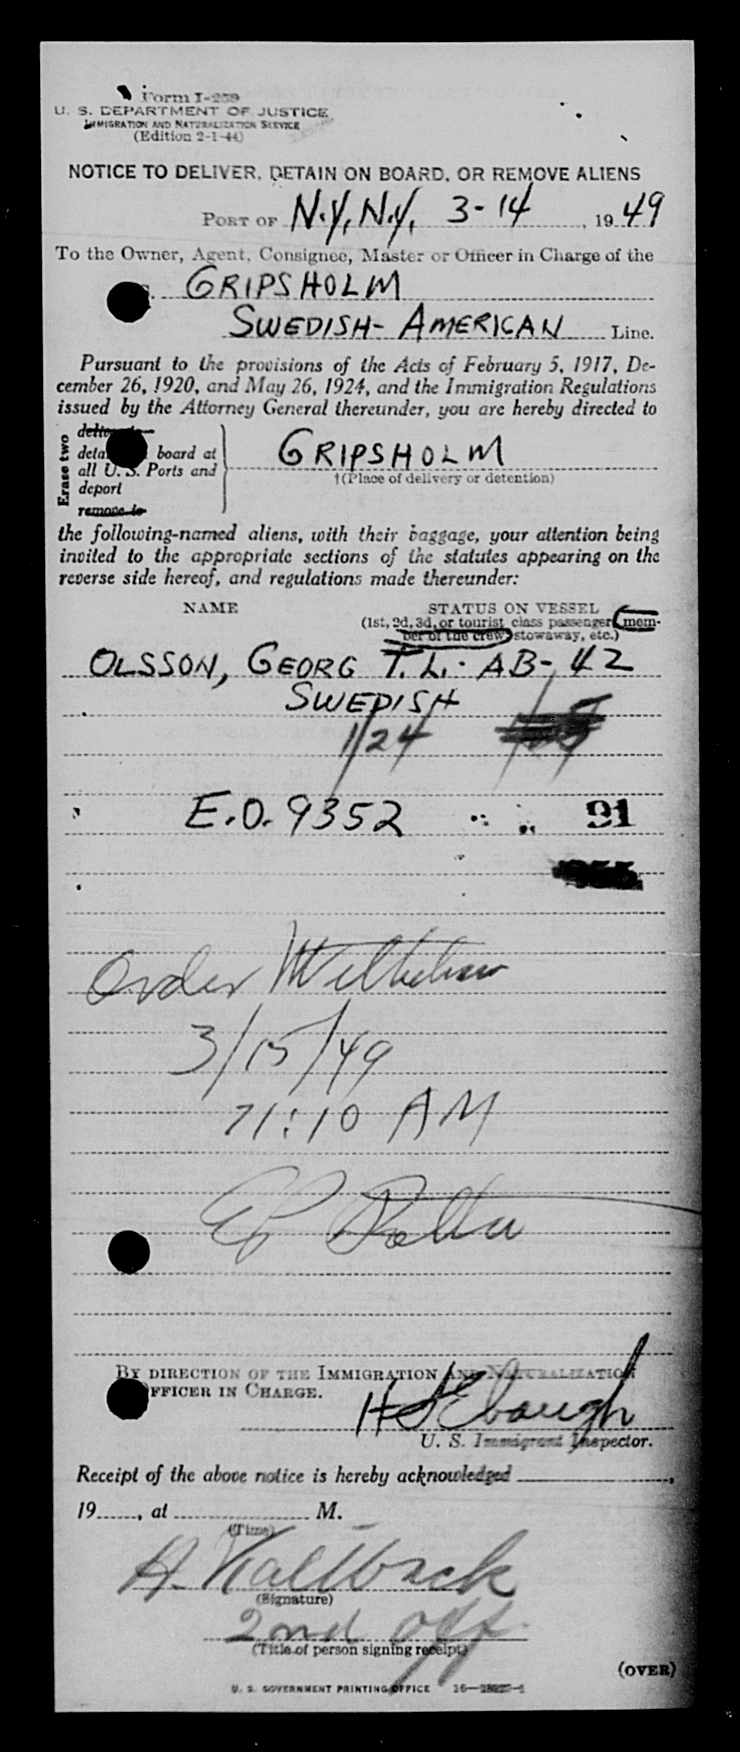 Form I-259
U. S. DEPARTMENT OF JUSTICE
IMMIGRATION AND NATURALIZATION SERVICE
(Edition 2-1-44)
NOTICE TO DELIVER, DETAIN ON BOARD, OR REMOVE ALIENS
PORT OF N.Y., N.Y. 3-14, 1949
To the Owner, Agent, Consignee, Master or Officer in Charge of the
GRIPSHOLM
SWEDISH-AMERICAN Line.
Pursuant to the provisions of the Acts of February 5, 1917, De-
cember 26, 1920, and May 26, 1924, and the Immigration Regulations
issued by the Attorney General thereunder, you are hereby directed to
Erase two
board at
all U. S. Ports and
deport
remove to
GRIPSHOLM
†(Place of delivery or detention)
the following-named aliens, with their baggage, your attention being
invited to the appropriate sections of the statutes appearing on the
reverse side hereof, and regulations made thereunder:
NAME STATUS ON VESSEL
(1st, 2d, 3d, or tourist class passenger, mem-
ber of the crew, stowaway, etc.)
OLSSON, GEORG T. L. - AB-42
SWEDISH
1/24
E.O. 9352 91
Order
3/15/49
11:10 AM
BY DIRECTION OF THE IMMIGRATION AND NATURALIZATION
OFFICER IN CHARGE.
H S Ebaugh
U. S. Immigrant Inspector.
Receipt of the above notice is hereby acknowledged ,
19 , at M.
(Time)
(Signature)
2nd off.
(Title of person signing receipt)
(OVER)
U. S. GOVERNMENT PRINTING OFFICE